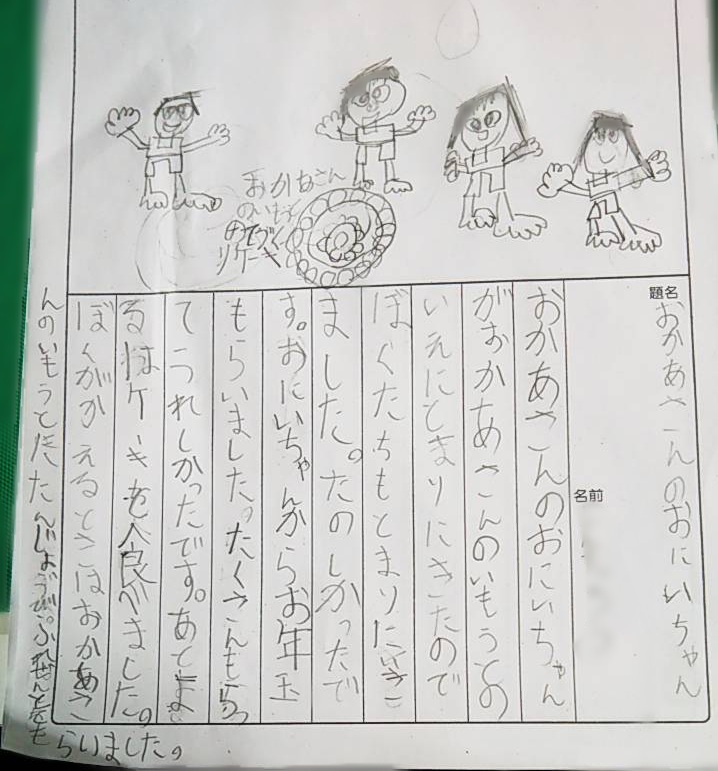 おかあさん
のいもうと
のてづく
りケーキ
題名
おかあさんのおにいちゃん
名前
おかあさんのおにいちゃん
がおかあさんのいもうとの
いえにとまりにきたので
ぼくたちもとまりにいき
ました。たのしかったで
す。おにいちゃんからお年玉
もらいました。たくさんもらっ
てうれしかったです。あとよ
るはケーキを食べました。
ぼくがかえるときはおかあさ
んのいもうとにたんじょうびぷれぜんとをも
らいました。